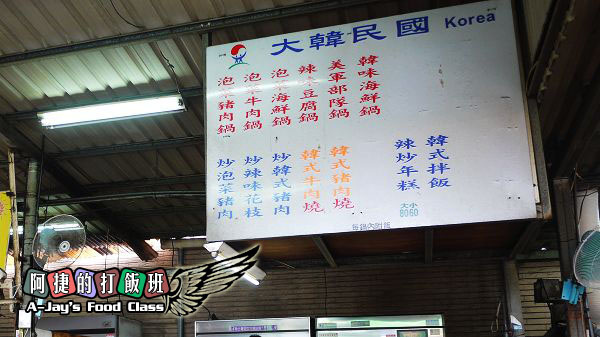 大韓民國 Korea
韓味海鮮鍋
美軍部隊鍋
辣味豆腐鍋
泡菜海鮮鍋
泡菜牛肉鍋
泡菜豬肉鍋
韓式拌飯
辣炒年糕
大小
8060
韓式豬肉燒
韓式牛肉燒
炒韓式豬肉
炒辣味花枝
炒泡菜豬肉
每鍋內附飯
阿捷的打飯班
A-Jay's Food Class